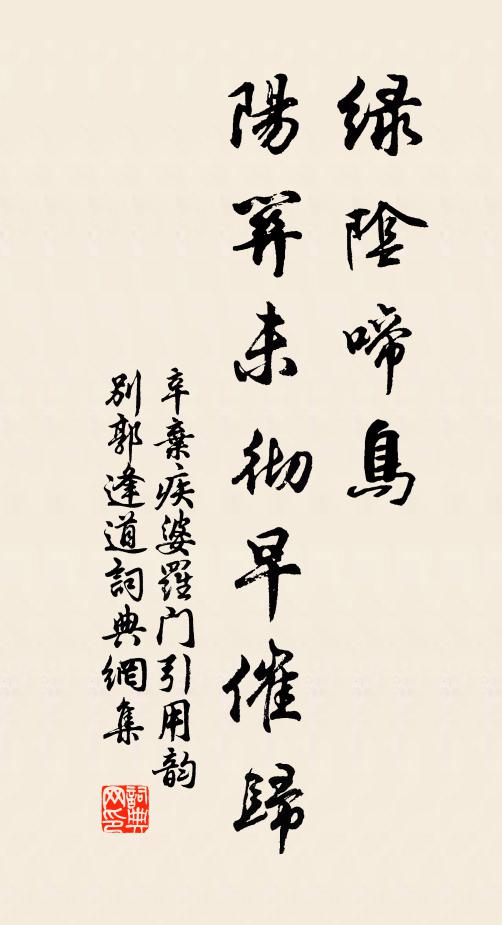 緑陰啼鳥
陽關未徹早催歸
辛棄疾婆羅门引用韵
别郭逢道詞典網集
詞典网印